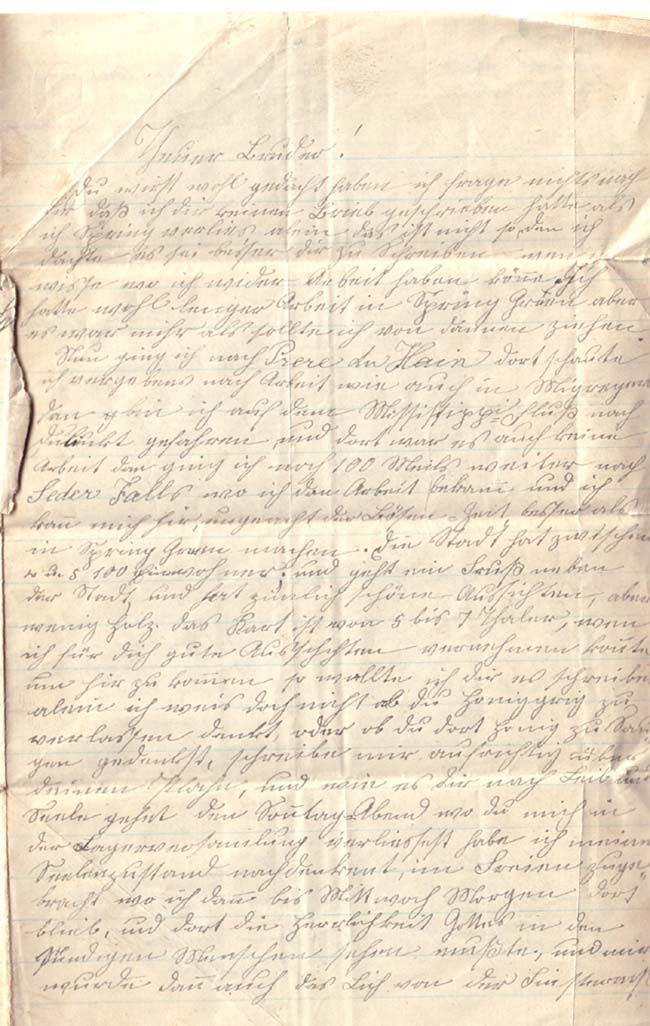 Theuer Bruder!
Du wirst wohl gedacht haben ich frage nichts nach
dir daß ich dir keinen Brieb geschrieben hatte als
ich Spring verlies alein das ist nicht so, den ich
dachte es sei besser dir zu Schreiben wen ich
wisse wo ich wider Arbeit haben köne, Ich
hatte wohl lenger Arbeit in Spring Green aber
es war mihr als sollte ich von dannen ziehen
Nun ging ich nach Prere du Hain dort schaute
ich vergebens nach Arbeit wie auch in Migregen
dan bin ich auf dem Mississippi Fluß nach
gefahren und dort war es auch keine
Arbeit dan ging ich noch 100 Meils weiter nach
Seder Falls wo ich dan Arbeit bekam und ich
kan mich hir, ungeacht der Bösen Zeit besser als
in Spring Green machen. Die Stadt hat zwischen
5 100 Einwohner, und geht ein Fluß neben
der Stadt und hat zimlich schöne Aussichten, aber
wenig Holz. das Kart ist von 5 bis 7 Thaler, wen
ich für dich gute Aussichten vernehmen könte
um hir zu kommen so wollte ich dir es schreibe
alein ich weis doch nicht ob du Honiggrig zu
verlassen denkst, oder ob du dort Honig zu
gen gedenkst, schreibe mir aufrichtig über
deinen Plahn, und wie es dir nach Leib und
Seele gehet den Sontag Abend wo du mich in
der Lagerversamlung verliessest habe ich meine
Seelenzustand nachdenkent, im Freien zuge-
bracht wo ich dann bis Mittwoch Morgen dort
blieb, und dort die Herrlichkeit Gottes in den
sündigen Menschen sehen mußte, und mir
wurde dann auch das Lich von der Finsterniß